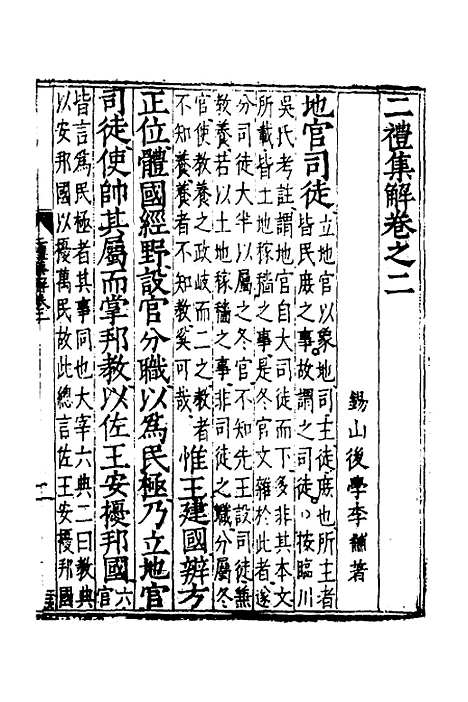 二禮集解卷之二
錫山後學李黼著
地官司徒立地官以象地司主徒庶也所主者
皆民庶之事故謂之司徒○按臨川
吳氏考註謂地官自大司徒而下多非其本文
所載皆土地稼穡之事是冬官文雜於此者遂
分司徒大半以屬之冬官不知先王設司徒無
教養若以土地稼穡之事非司徒之職分屬冬
官使教養之政岐而二之教者惟王建國辨方
不知養養者不知教奚可哉
正位體國經野設官分職以為民極乃立地官
司徒使帥其屬而掌邦教以佐王安擾邦國六官
皆言為民極者其事同也大宰六典二曰教典
以安邦國以擾萬民故此總言佐王安擾邦國